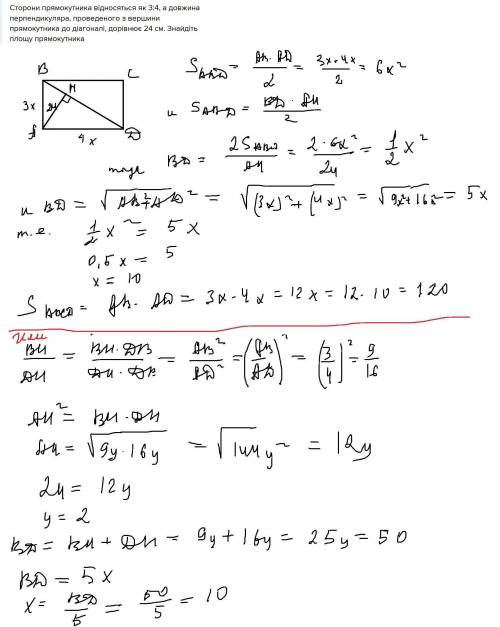 Сторони прямокутника відносяться як 3:4, а довжина
перпендикуляра, проведеного з вершини
прямокутника до діагоналі, дорівнює 24 см. Знайдіть
площу прямокутника
B C
H
3x 24
A 4x D
S_ABD = AB·AD/2 = 3x·4x/2 = 6x²
и S_ABD = BD·AH/2
тогда BD = 2S_ABD/AH = 2·6x²/24 = 1/2 x²
и BD = √(AB²+AD²) = √((3x)²+(4x)²) = √(9x²+16x²) = 5x
т.е. 1/2 x² = 5x
0,5x = 5
x = 10
S_ABCD = AB·AD = 3x·4x = 12x = 12·10 = 120
или
BH/DH = BH·DB/DH·DB = AB²/AD² = (AB/AD)² = (3/4)² = 9/16
AH² = BH·DH
AH = √(9y·16y) = √(144y²) = 12y
24 = 12y
y = 2
BD = BH + DH = 9y + 16y = 25y = 50
BD = 5x
x = BD/5 = 50/5 = 10